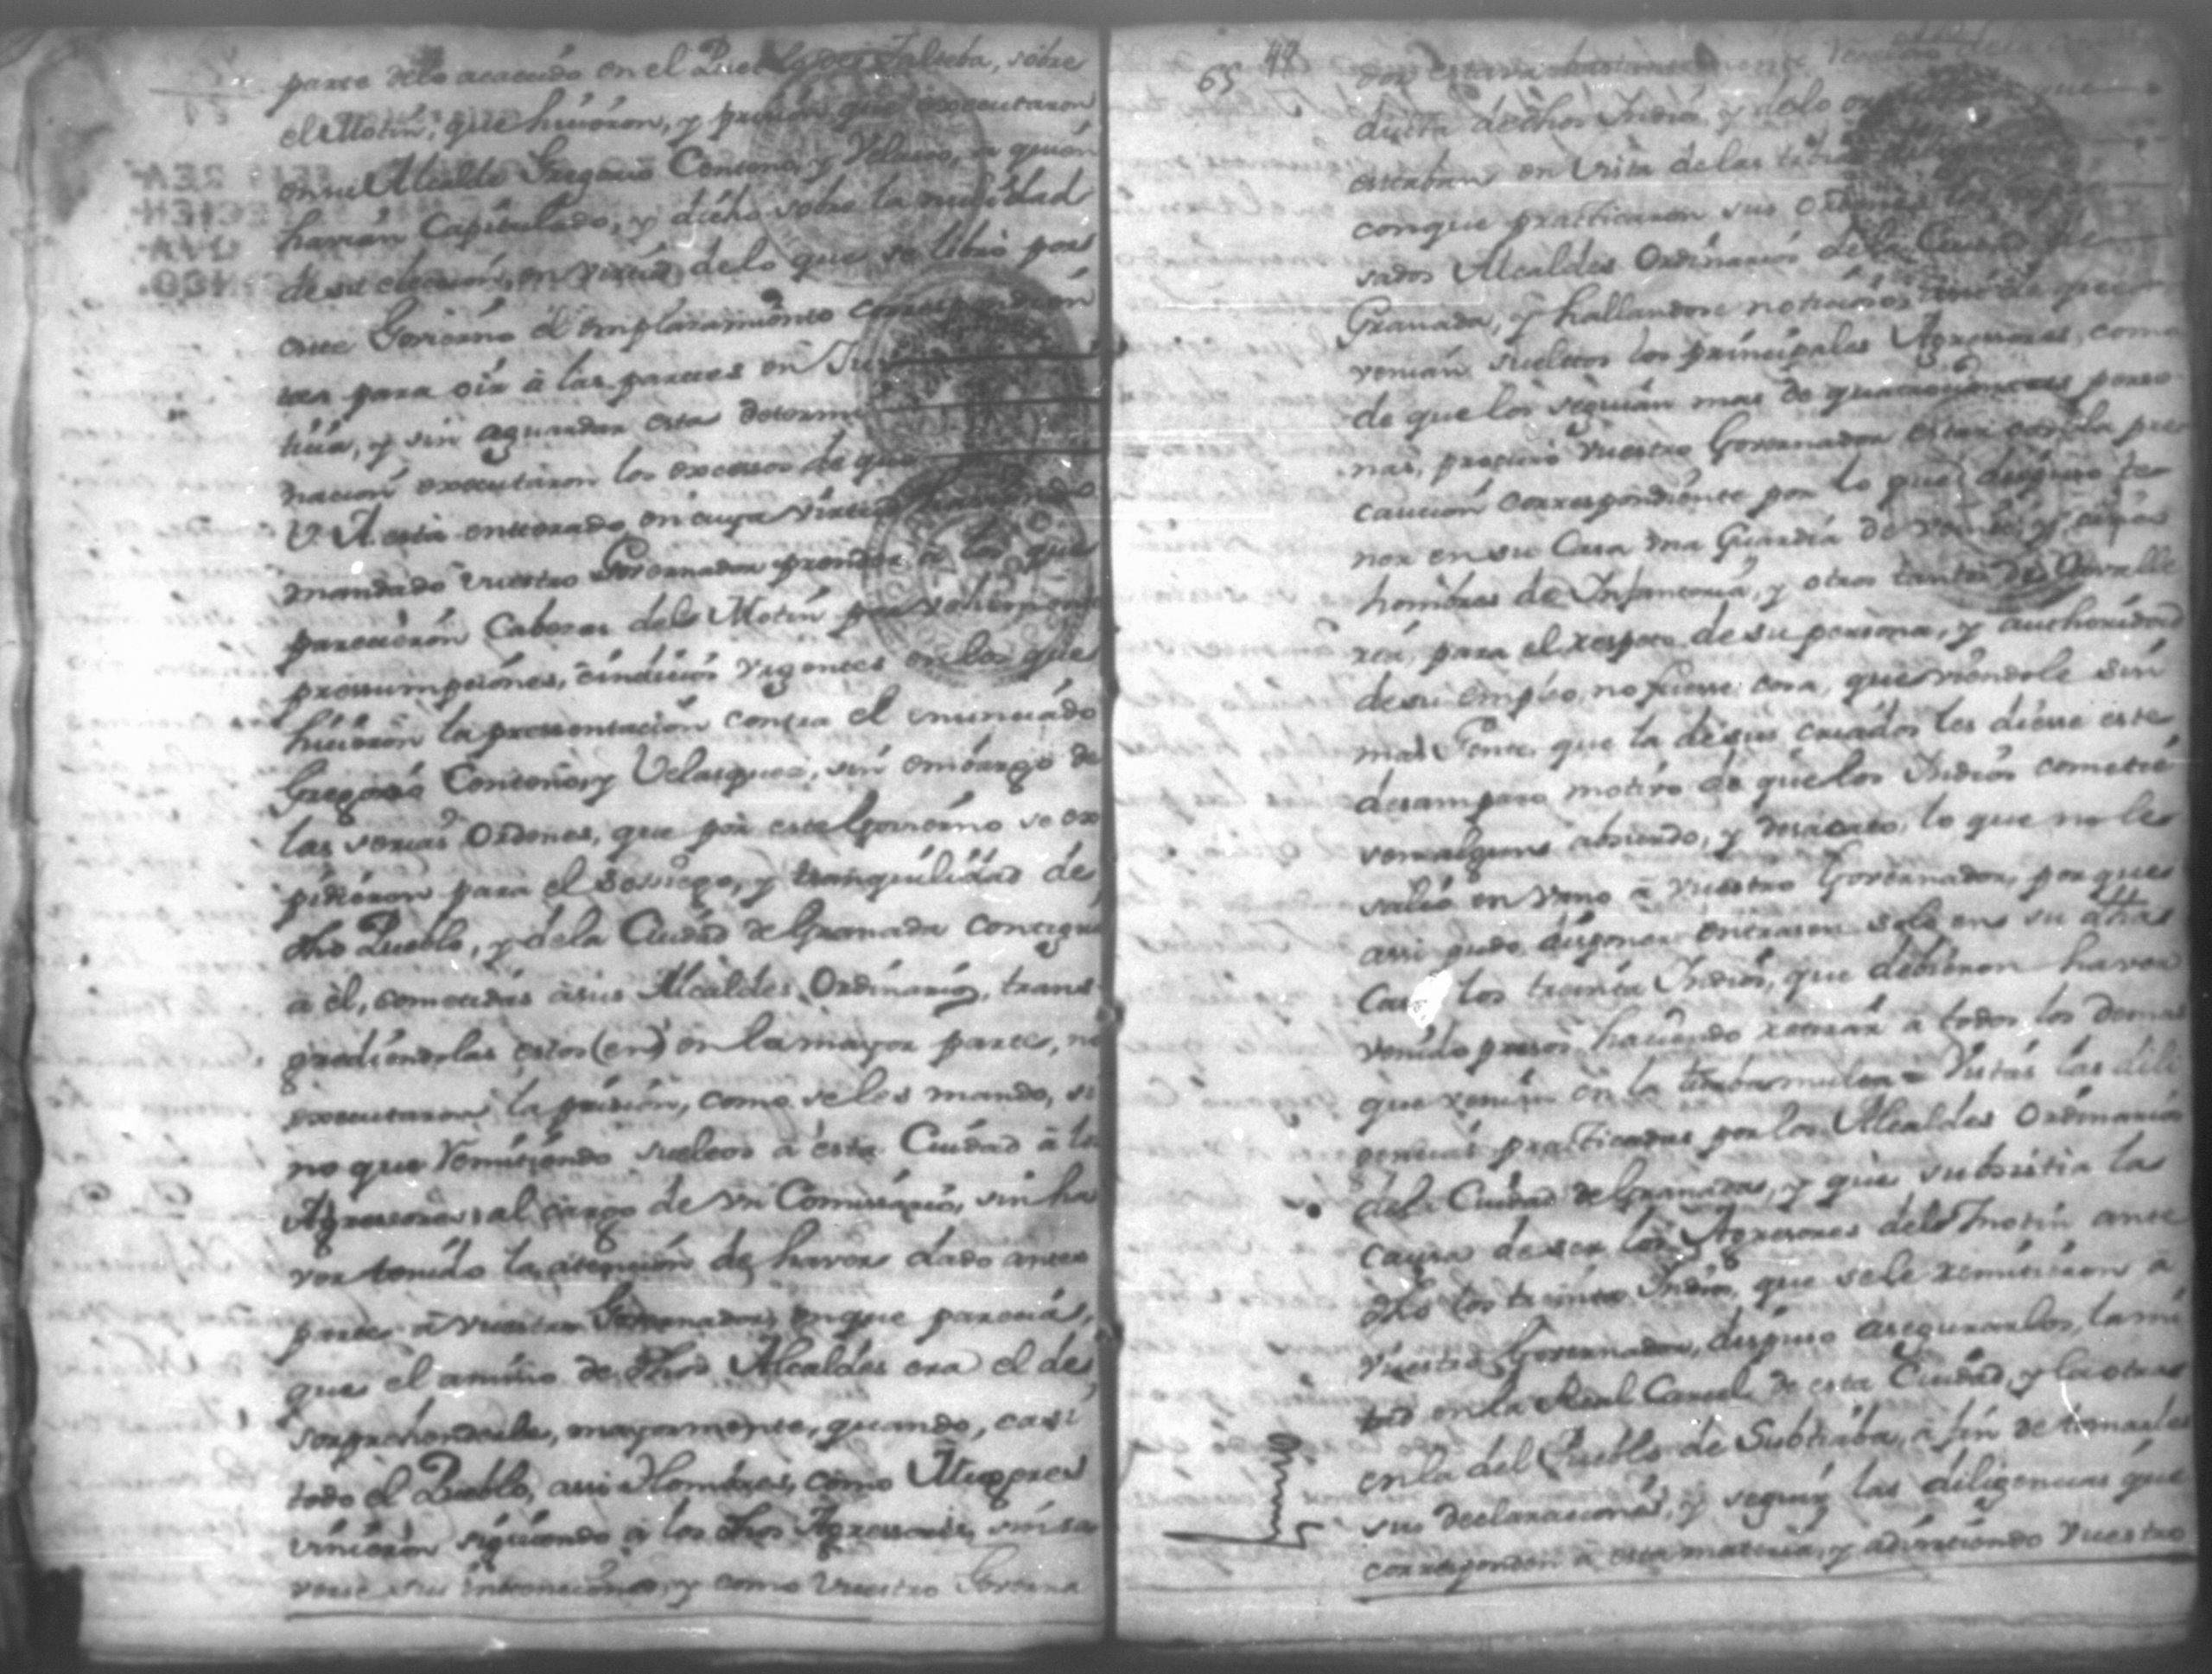 parte delo acaecido en el Pueblo de Jalteba, sobre
el Motin, que hicieron, y prision que executaron
en su Alcalde Gregorio Centeno, y Velasco, a quien
havian Capitulado, y dicho sobre la nulidad
de su eleccion, en virtud delo que se libró por
este Govierno el emplazamiento correspondien
tes para oir â las partes en Jus
ticia, y sin aguardar esta determi
nacion executaron los excessos de que
V. A. esta enterado, en cuya virtud haviendo
mandado vuestro Governador prender a los que
parecieron Cabezas dele Motin por vehementes
pressumpciones, é indicios vigentes en los que
hicieron la pressentacion contra el enunciado
Gregorio Centeno, y Velasquez, sin embargo de
las serias Ordenes, que por este Govierno se ex
pidieron para el sossiego, y tranquilidad de
dho Pueblo, y dela Ciudad de Granada contigua
â él, cometidas âsus Alcaldes Ordinarios, trans
grediendolas estos (en) en la mayor parte, no
executaron la prision, como seles mando, si
no que remitiendo sueltos â esta Ciudad â los
Agressores, al cargo de vn Comissario, sin ha
ver tenido la atencion de haver dado antes
parte â vuestro Governador, en que parecia,
que el animo de dhos Alcaldes era el de
sorprehenderle, mayormente, quando, casi
todo el Pueblo, assi Hombres, como Mugeres
vinieron siguiendo â los dhos Agressores, sin sa
verse sus intenciones, y como vuestro Governa
65 44
dor estava
ducta de dhos Indios, y delo que
estaban en vista de las
conque practicaron sus
sados Alcaldes Ordinarios de la Ciudad de
Granada, y hallandose noticioso
venian sueltos los principales Agressores, como
de que los seguian mas de quatrocientas perso
nas, procuró vuestro Governador estar con la pre
caucion correspondiente por lo que dispuso te
ner en su Casa vna Guardia de veinte y cinco
hombres de Infanteria, y otros tantos de Cavalle
ria, para el respeto de su persona, y authoridad
de su empleo, no fuesse cosa, que viendole sin
mas Gente, que la de sus criados les diesse este
desamparo motivo de que los Indios cometie
sen alguno absurdo, y desacato, lo que no le
salió en vano â vuestro Governador, por que
assi pudo disponer entrasen solo en su dha
Casa los treinta Indios, que debieron haver
venido presos, haciendo retirar â todos los demas
que venian en la turbamulta = Vistas las dili
gencias practicadas por los Alcaldes Ordinarios
dela Ciudad de Granada, y que subsistia la
causa de ser los Agresores dele motin ante
dho los treinta Indios, que sele remitieron a
vuestro Governador, dispuso asegurarlos, la mi
tad en la Real Carcel de esta Ciudad, y la otra
en la del Pueblo de Subtiaba, a fin de tomarles
sus declaraciones, y seguir las diligencias que
corresponden â esta materia, y advirtiendo vuestro